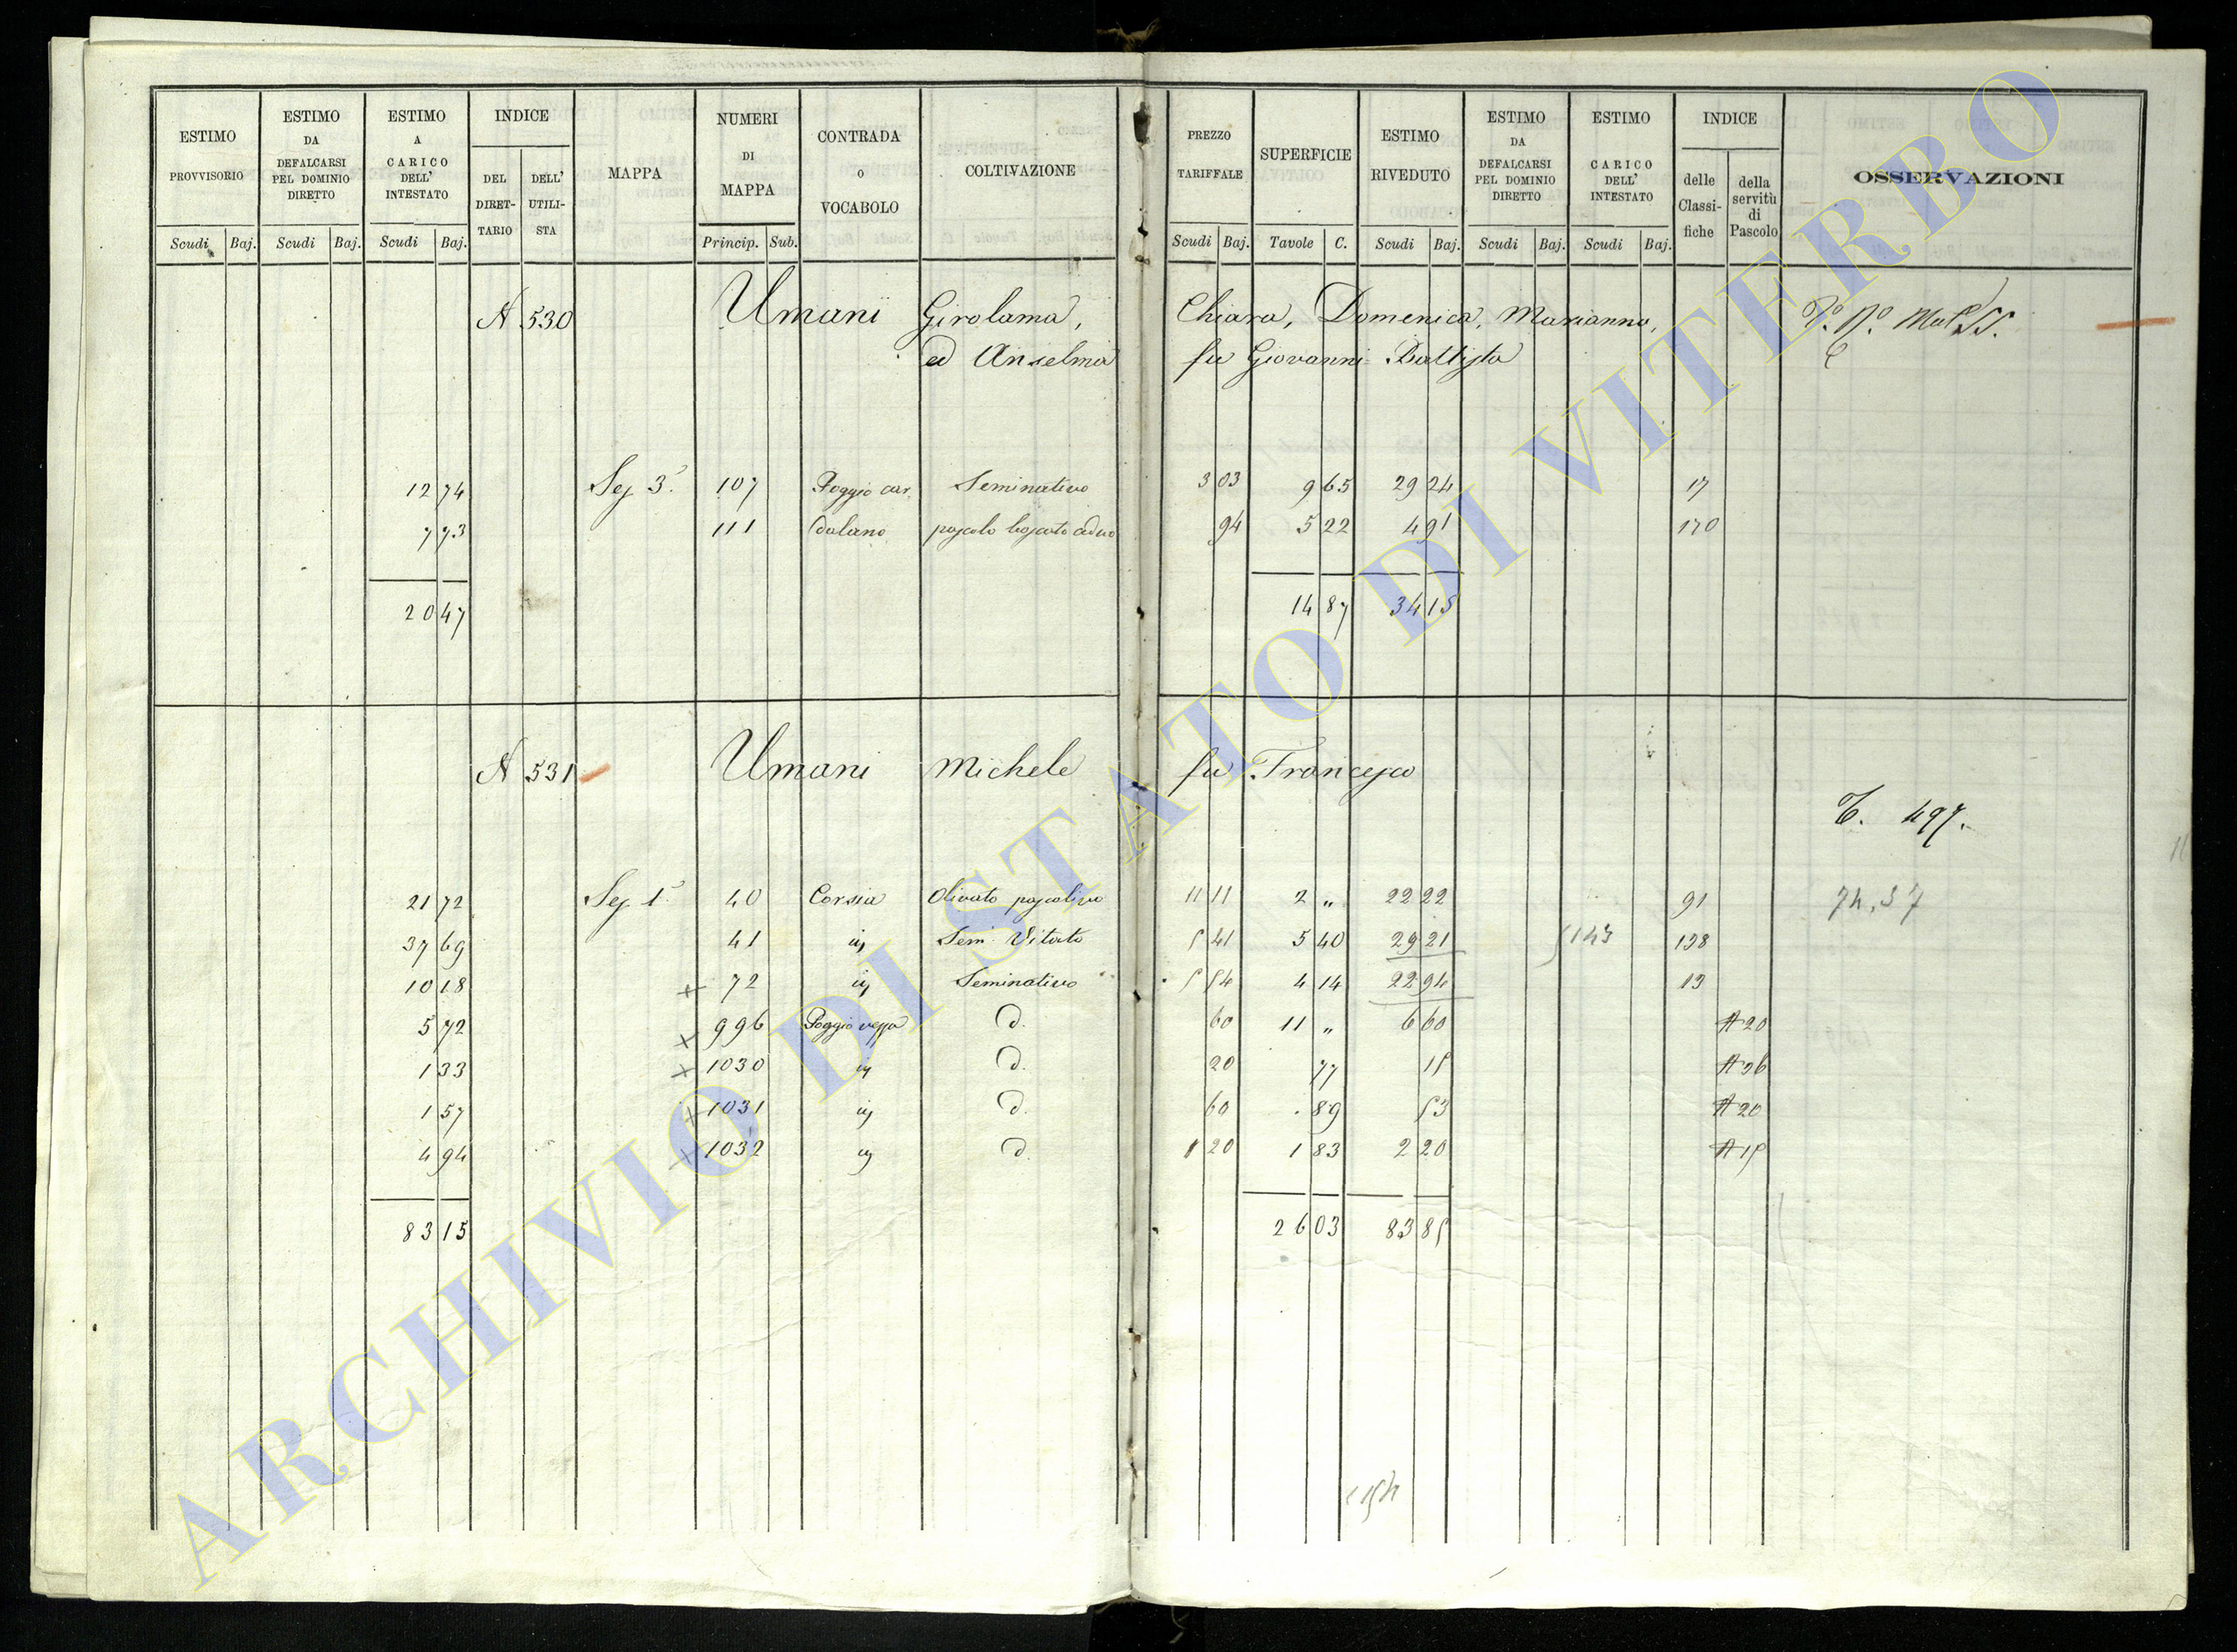 ESTIMO PROVVISORIO
ESTIMO DA DEFALCARSI PEL DOMINIO DIRETTO
ESTIMO A CARICO DELL' INTESTATO
INDICE
DEL DIRET-TARIO
DELL' UTILI-STA
MAPPA
NUMERI DI MAPPA
CONTRADA O VOCABOLO
COLTIVAZIONE
PREZZO TARIFFALE
SUPERFICIE
ESTIMO RIVEDUTO
ESTIMO DA DEFALCARSI PEL DOMINIO DIRETTO
ESTIMO CARICO DELL' INTESTATO
INDICE
delle Classi-fiche
della servitù di Pascolo
OSSERVAZIONI
Scudi Baj. Scudi Baj. Scudi Baj. Princip. Sub. Scudi Baj. Tavole C. Scudi Baj. Scudi Baj. Scudi Baj.
N 530 Umani Girolama, Chiara, Domenica, Marianna,
ed Anselma fu Giovanni Battista
12 74 Sez 3ª 107 Poggio car. Seminativo 3 03 9 65 29 24 17
7 73 111 pascolo boscato ceduo 94 5 22 4 91 170
20 47 14 87 34 15
N 531 Umani Michele fu Francesco
T. 497.
21 72 Sez 1ª 40 Corsia Olivato pascolivo 11 11 2 " 22 22 91 74,37
37 69 41 iy Sem. Vitato 5 41 5 40 29 21 138
10 18 + 72 iy Seminativo 5 54 4 14 22 94 13
5 72 + 996 Poggio d. 60 11 " 6 60 A 20
1 33 + 1030 iy d. 20 77 15 A 26
1 57 + 1031 iy d. 60 89 53 A 20
4 94 + 1032 iy d. 1 20 1 83 2 20 A 15
83 15 26 03 83 85
ARCHIVIO DI STATO DI VITERBO